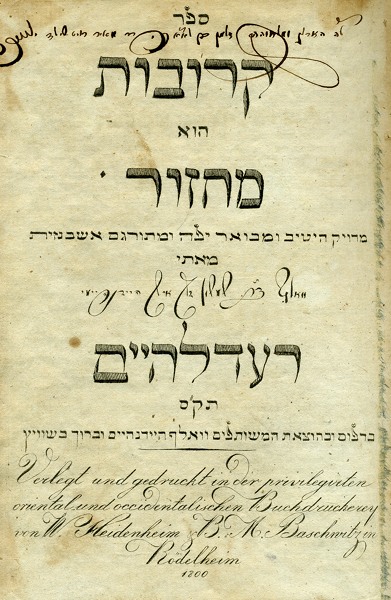 ספר
קרובות
הוא
מחזור
מדויק היטיב ומבואר יפה ומתורגם אשכנזית
מאתי
וואלף
רעדלהיים
תק״ס
בדפוס ובהוצאת המשותפים וואלף היידנהיים וברוך בשוויץ
Verlegt und gedruckt in der privilegirten
oriental und occidentalischen Buchdruckerey
von W. Heidenheim & B. M. Baschwitz in
Rödelheim
1800